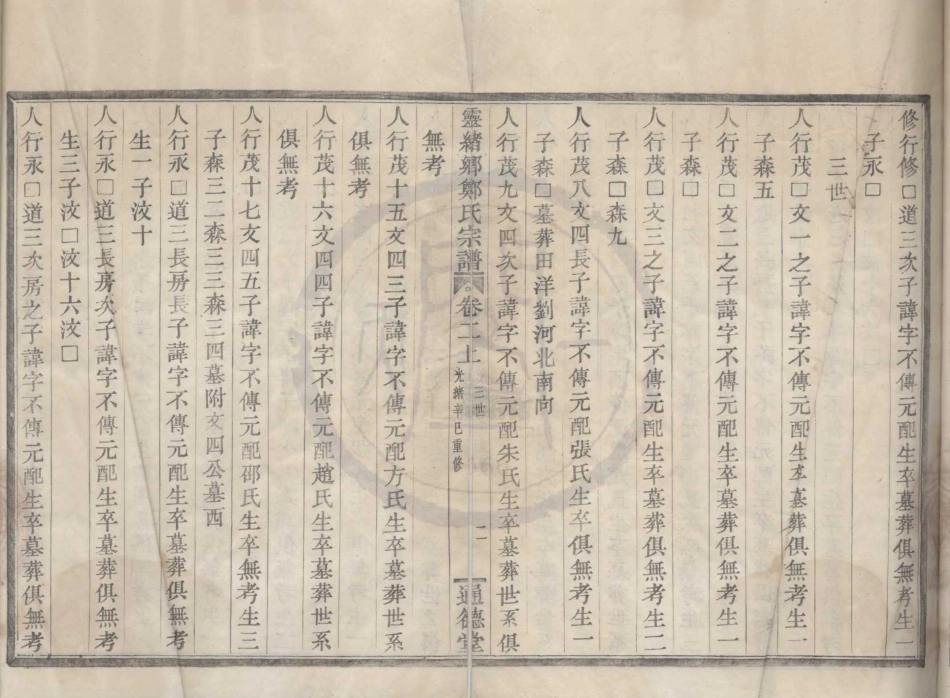 修行修□道三次子諱字不傳元配生卒墓葬俱無考生
子永□
三世
人行茂□文一之子諱字不傳元配生卒墓葬俱無考生一
子森五
人行茂□文二之子諱字不傳元配生卒墓葬俱無考生一
子森□
人行茂□文三之子諱字不傳元配生卒墓葬俱無考生二
子森□森九
人行茂八文四長子諱字不傳元配張氏生卒俱無考生一
子森□墓葬田洋劉河北南向
人行茂九文四次子諱字不傳元配朱氏生卒墓葬世系俱
靈緒鄉鄭氏宗譜 卷二上 三世 光緒辛巳重修 二 通德堂
無考
人行茂十五文四三子諱字不傳元配方氏生卒墓葬世系
俱無考
人行茂十六文四四子諱字不傳元配趙氏生卒墓葬世系
俱無考
人行茂十七文四五子諱字不傳元配邵氏生卒無考生三
子森三二森三三森三四墓附文四公墓西
人行永□道三長房長子諱字不傳元配生卒墓葬俱無考
生一子汶十
人行永□道三長房次子諱字不傳元配生卒墓葬俱無考
生三子汶□汶十六汶□
人行永□道三次房之子諱字不傳元配生卒墓葬俱無考